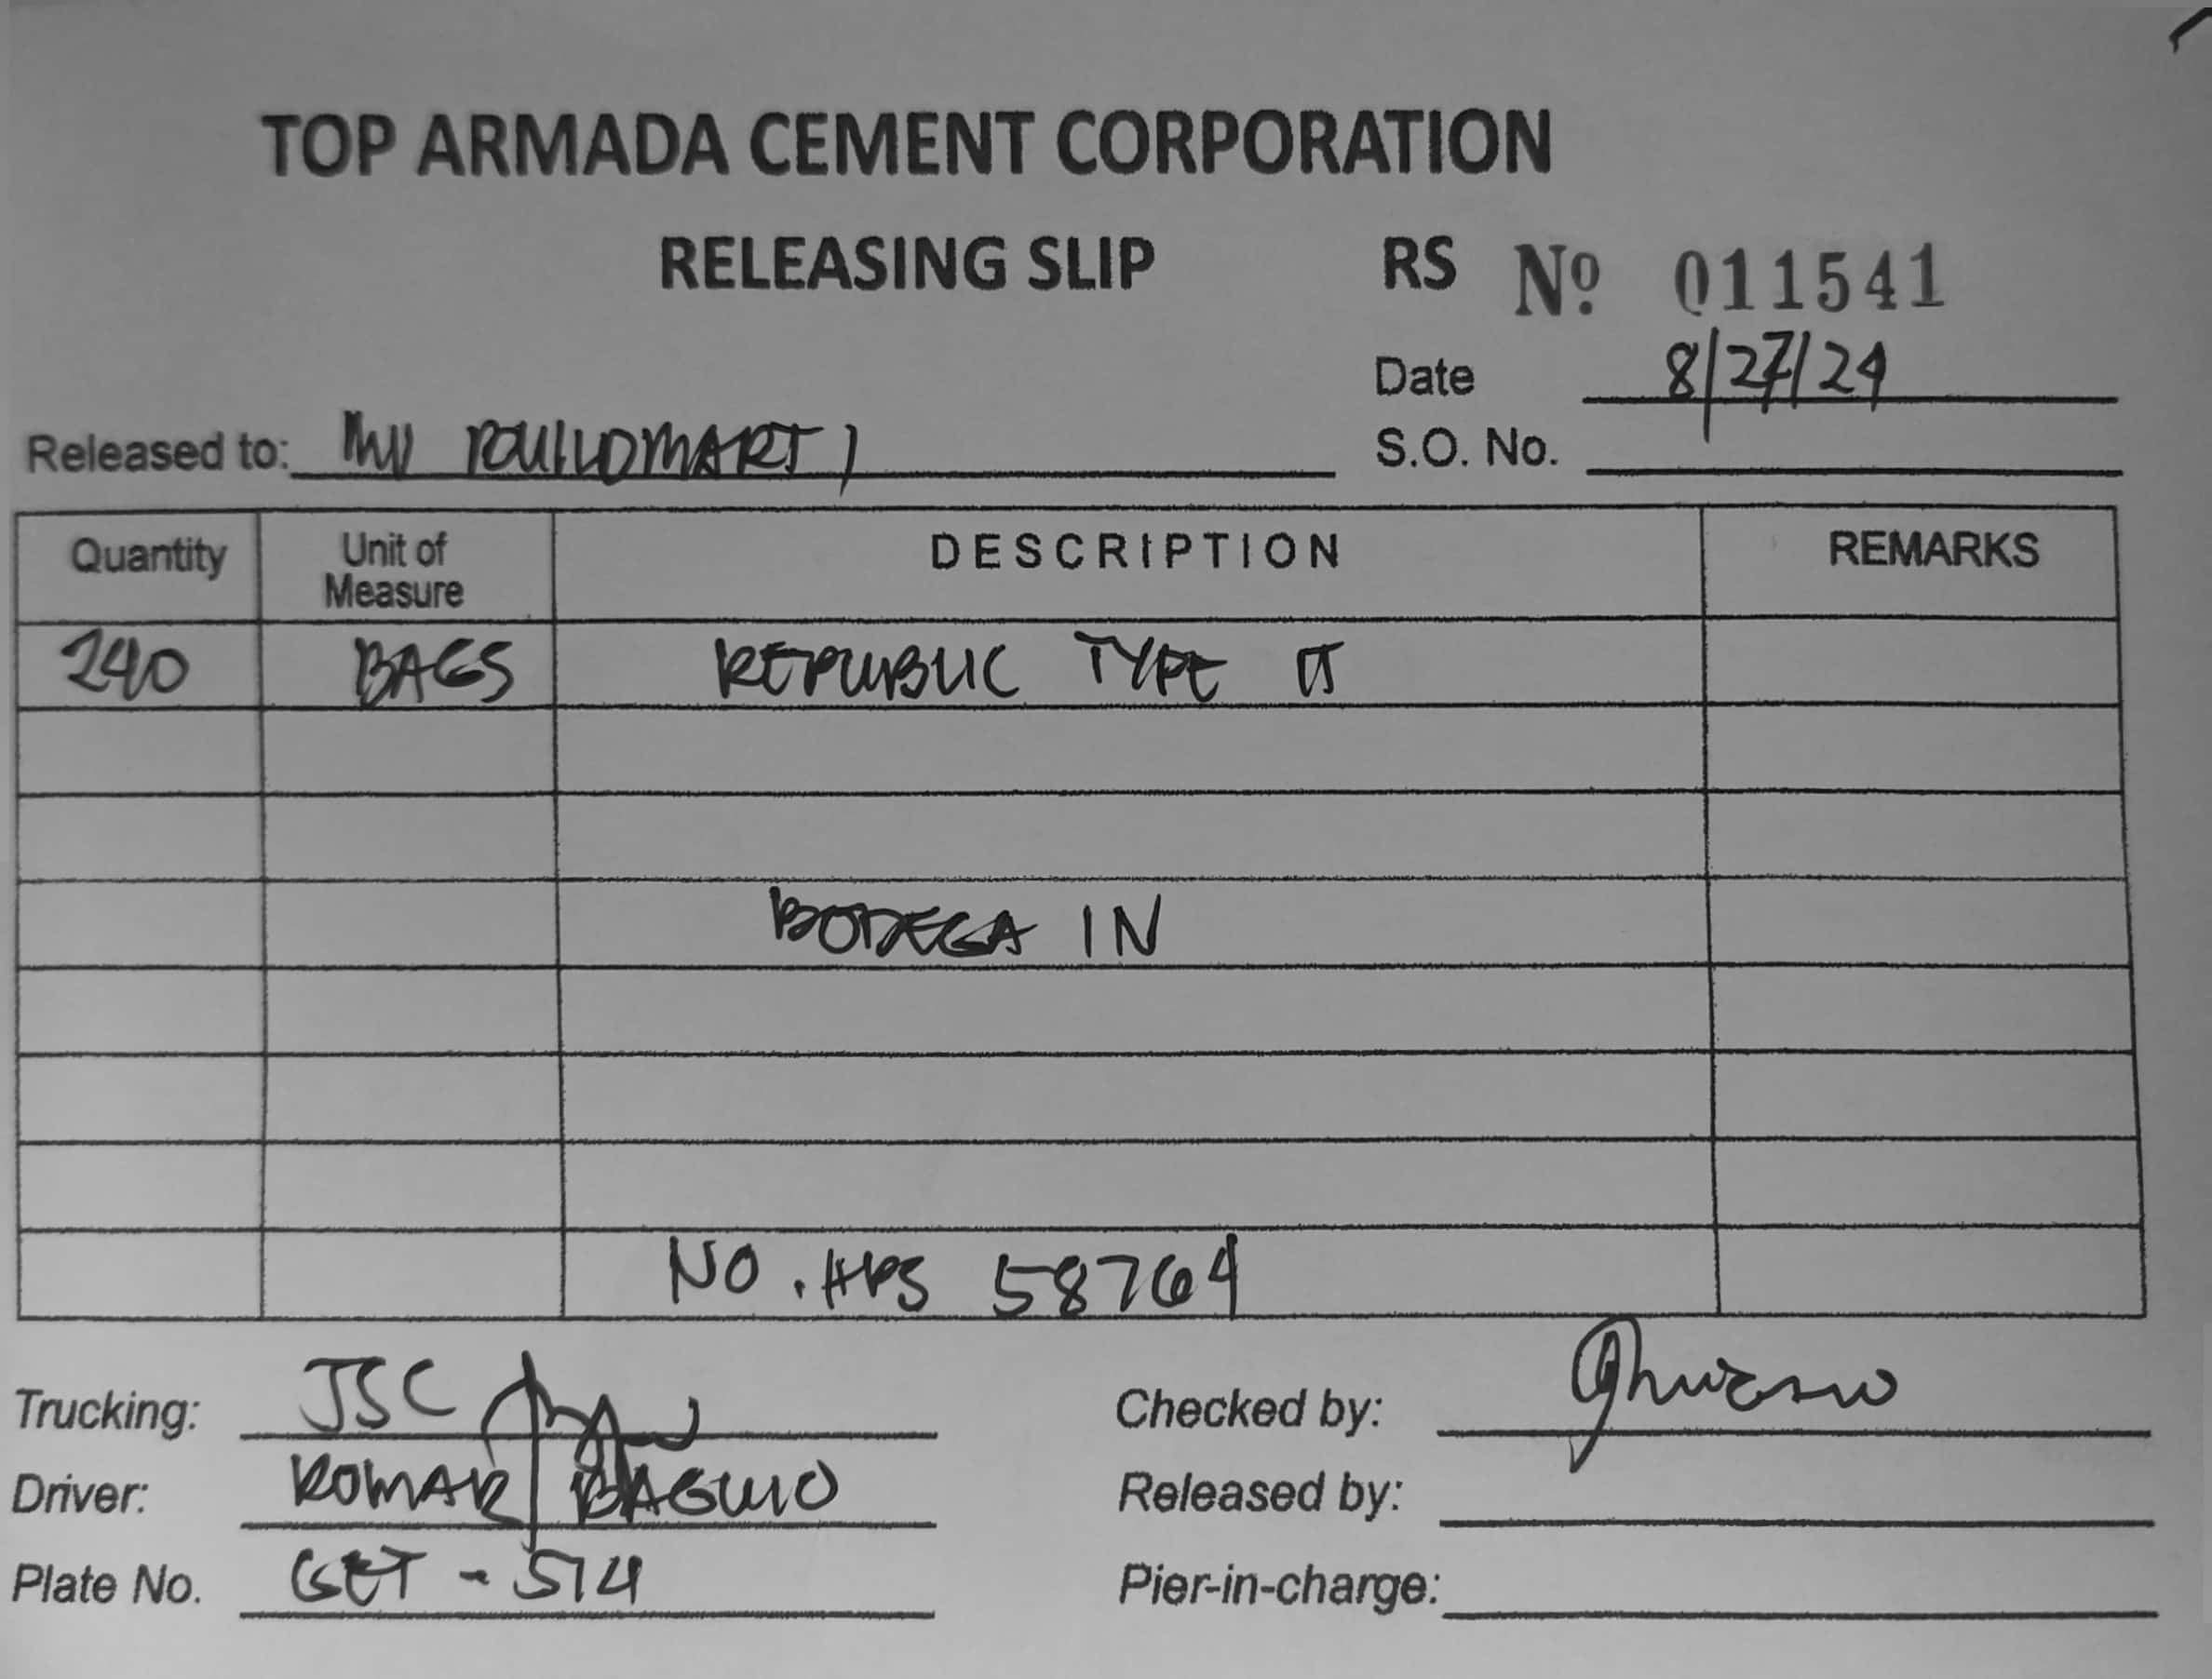 TOP ARMADA CEMENT CORPORATION
RELEASING SLIP RS Nº 011541
Date 8/27/24
Released to: BUILDMART 1
S.O. No.
Quantity Unit of Measure DESCRIPTION REMARKS
240 BAGS REPUBLIC TYPE II
BODEGA IN
NO. HPS 58764
Trucking: JSC
Checked by:
Driver: ROMAR BAGUIO
Released by:
Plate No. GET - 514
Pier-in-charge: